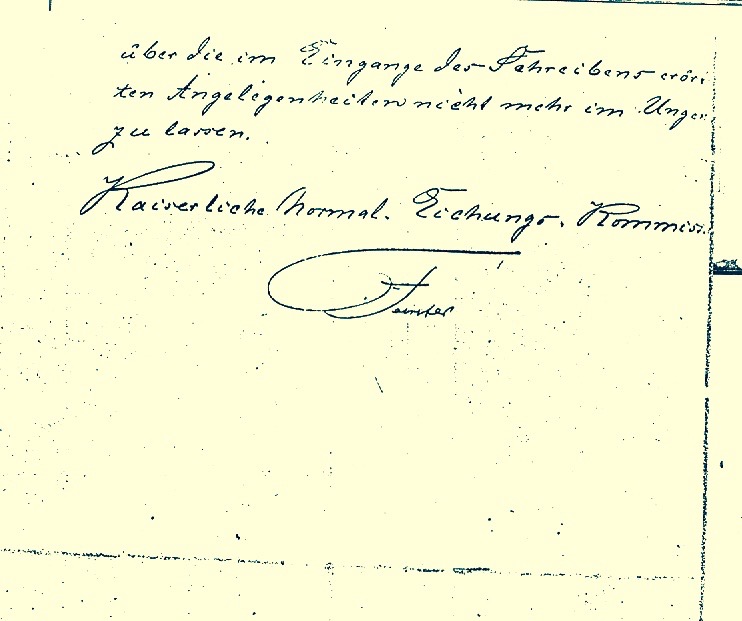 über die im Eingange des Schreibens erör
ten Angelegenheiten nicht mehr im Unge
zu lassen.
Kaiserliche Normal. Eichungs. Kommiss.